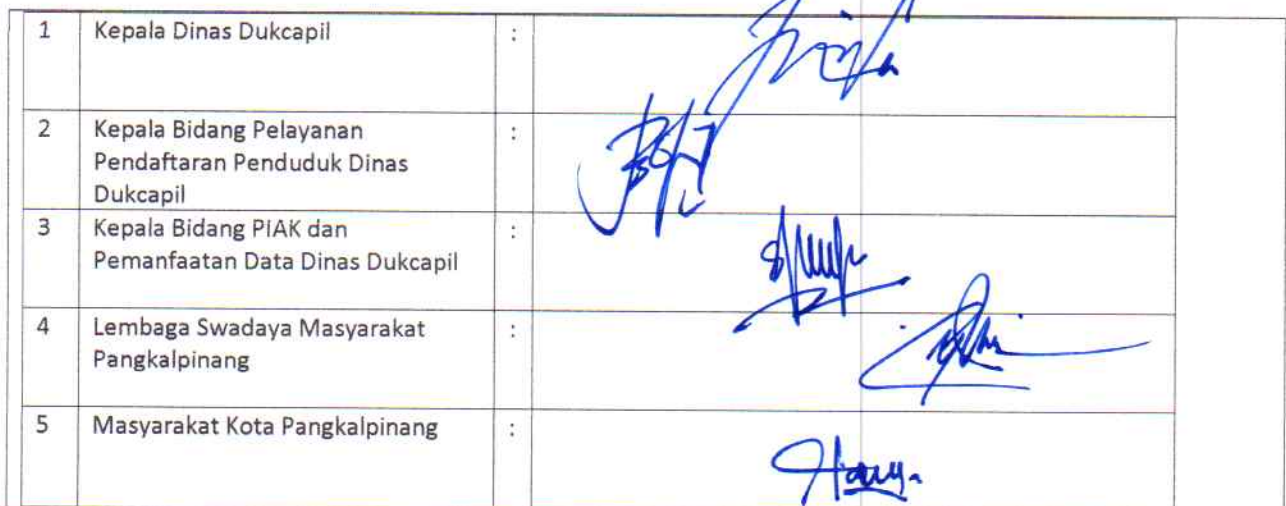 1 Kepala Dinas Dukcapil :
2 Kepala Bidang Pelayanan :
Pendaftaran Penduduk Dinas
Dukcapil
3 Kepala Bidang PIAK dan :
Pemanfaatan Data Dinas Dukcapil
4 Lembaga Swadaya Masyarakat :
Pangkalpinang
5 Masyarakat Kota Pangkalpinang :